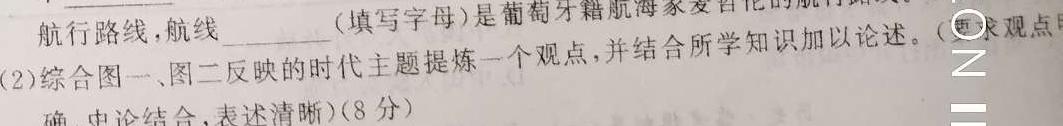 航行路线,航线______(填写字母)是葡萄牙籍航海家麦哲伦的航行路线。
(2)综合图一、图二反映的时代主题提炼一个观点,并结合所学知识加以论述。(要求观点
确,史论结合,表述清晰)(8分)
ION II